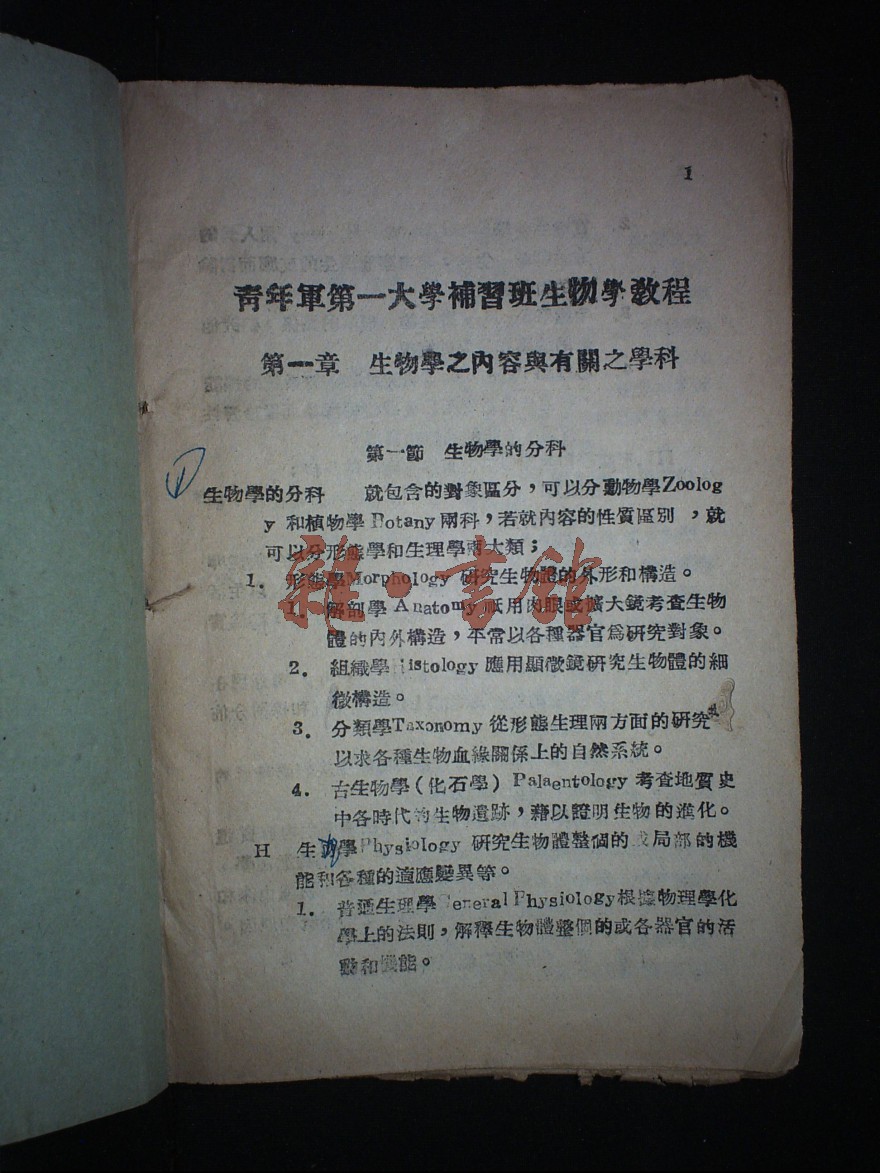 1
靑年軍第一大學補習班生物學敎程
第一章 生物學之內容與有關之學科
第一節 生物學的分科
生物學的分科 就包含的對象區分,可以分動物學Zoolog
y 和植物學Botany兩科,若就內容的性質區別 ,就
可以分形態學和生理學兩大類;
1. 形態學Morphology 硏究生物體的外形和構造。
1. 解剖學 Anatomy 祇用肉眼或擴大鏡考査生物
體的內外構造,平常以各種器官爲硏究對象。
2. 組織學Histology 應用顯微鏡硏究生物體的細
微構造。
3. 分類學Taxonomy 從形態生理兩方面的硏究
以求各種生物血緣關係上的自然系統。
4. 古生物學(化石學) Palaentology 考査地質史
中各時代的生物遺跡,藉以證明生物的進化。
H 生理學Physiology 硏究生物體整個的或局部的機
能和各種的適應變異等。
1. 普通生理學General Physiology根據物理學化
學上的法則,解釋生物體整個的或各器官的活
動和機能。
雜·書館